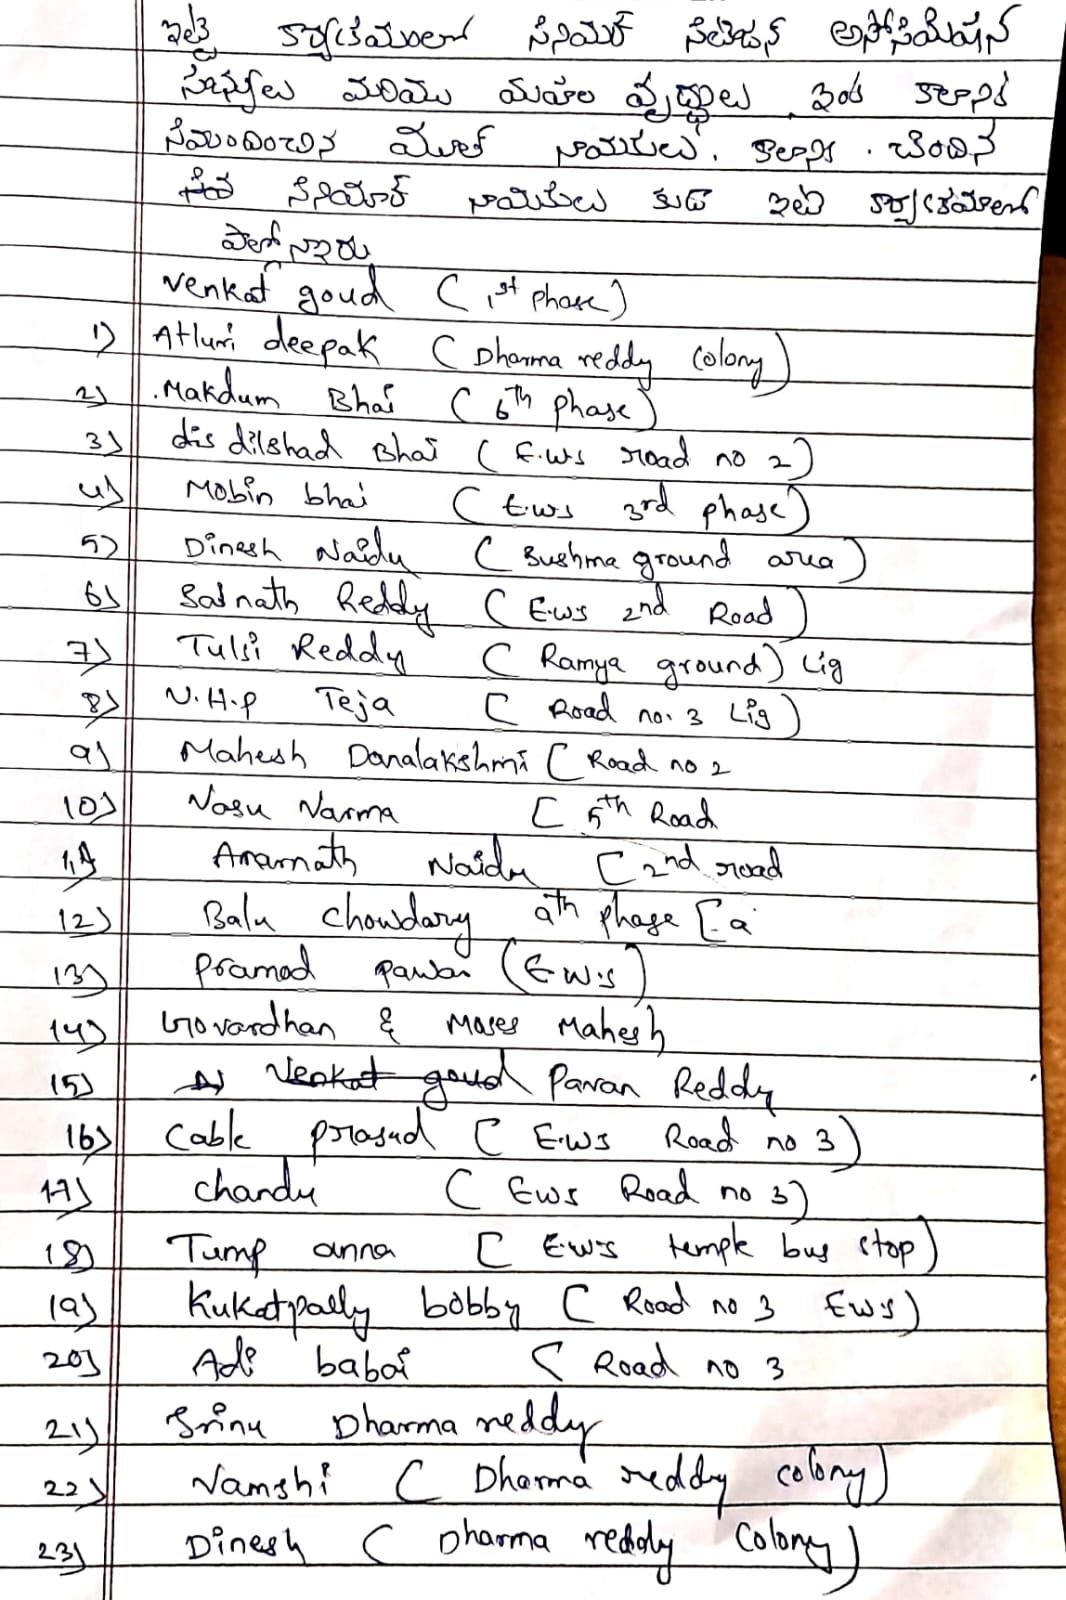 ఇట్టి కార్యక్రమంలో సీనియర్ సిటిజన్ అసోసియేషన్
సభ్యులు మరియు మహిళ వృద్ధులు ఇంక కాలానికి
సంబంధించిన యూత్ నాయకులు. కాలనీకి . చెందిన
సీనియార్ నాయకులు కుడా ఇట్టి కార్యక్రమాలలో
పాల్గొన్నారు
Venkat goud ( 1st phase)
1) Atluri deepak ( Dharma reddy Colony)
2) . Makdum Bhai ( 6th phase)
3) dilshad Bhai ( E.W.S road no 2)
4) Mobin bhai ( E.W.S 3rd phase)
5) Dinesh Naidu ( Sushma ground area)
6) Sainath Reddy ( E.W.S 2nd Road)
7) Tulsi Reddy ( Ramya ground) Lig
8) N.H.P Teja [ Road no. 3 Lig)
9) Mahesh Danalakshmi [ Road no 2
10) Vasu Varma [ 5th Road
11) Amarnath Naidu [ 2nd road
12) Balu Chowdary 9th phase [
13) Pramod pawar (E.W.S)
14) Govardhan & Moses Mahesh
15) Venkat goud Pavan Reddy
16) Cable prasad [ E.W.S Road no 3)
17) Chandu ( EWS Road no 3)
18) Tump anna [ E.W.S temple bus stop)
19) Kukatpally bobby [ Road no 3 EWS)
20) Adi babai ( Road no 3
21) Srinu Dharma reddy
22) Vamshi ( Dharma reddy colony)
23) Dinesh ( Dharma reddy Colony)